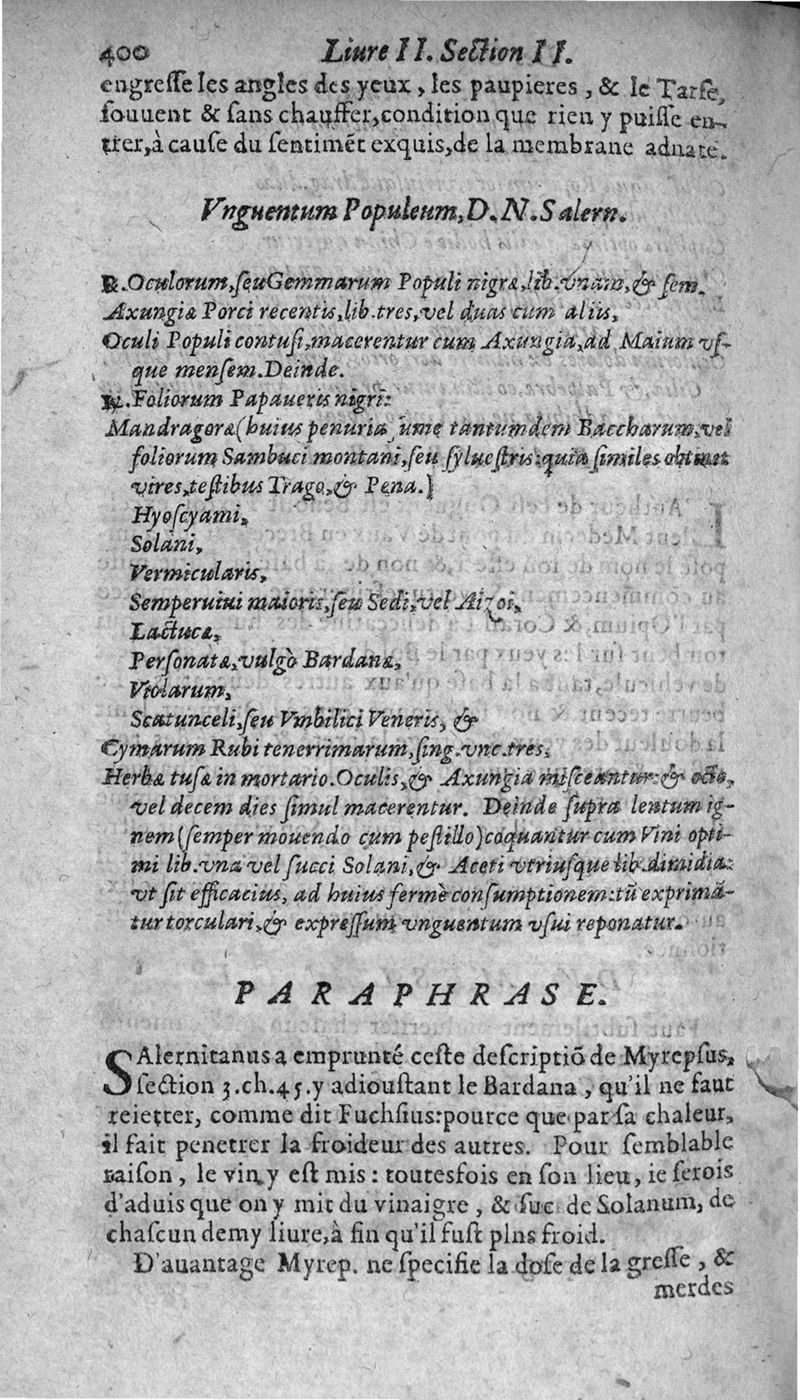 400 Liure II. Section II.
engresse les angles des yeux, les paupieres, & le Tarse,
souuent & sans chauffer, condition que rien y puisse en-
trer, à cause du sentimẽt exquis, de la membrane adnate.
Vnguentum Populeum, D. N. Salern.
℞. Oculorum, seu Gemmarum Populi nigræ, lib. vnam, & sem.
Axungiæ Porci recentis, lib. tres, vel duas cum aliis,
Oculi Populi contusi, macerentur cum Axungia, ad Maium vs-
que mensem. Deinde.
℞. Foliorum Papaueris nigri:
Mandragoræ (huius penuria sume tantumdem Baccharum, vel
foliorum Sambuci montani, seu syluestris: quia similes obtinet
vires, testibus Trago, & Pena.)
Hyoscyami,
Solani,
Vermicularis,
Semperuiui maioris, seu Sedi, vel Aizoi,
Lactucæ,
Personatæ, vulgò Bardanæ,
Violarum,
Scatunceli, seu Vmbilici Veneris, &
Cymarum Rubi tenerrimarum, sing. vnc. tres,
Herbæ tusæ in mortario. Oculis, & Axungiæ misceantur: & octo,
vel decem dies simul macerentur. Deinde supra lentum ig-
nem (semper mouendo cum pestillo) coquantur cum Vini opti-
mi lib. vna vel succi Solani, & Aceti vtriusque lib. dimidia:
vt sit efficacius, ad huius fermè consumptionem: tũ exprimã-
tur torculari, & expressum vnguentum vsui reponatur.
PARAPHRASE.
SAlernitanus a emprunté ceste descriptiõ de Myrepsus,
section 3. ch. 45. y adioustant le Bardana, qu'il ne faut
reietter, comme dit Fuchsius: pource que par sa chaleur,
il fait penetrer la froideur des autres. Pour semblable
raison, le vin y est mis: toutesfois en son lieu, ie serois
d'aduis que on y mit du vinaigre, & suc de Solanum, de
chascun demy liure, à fin qu'il fust plns froid.
D'auantage Myrep. ne specifie la dose de la gresse, &
merdes